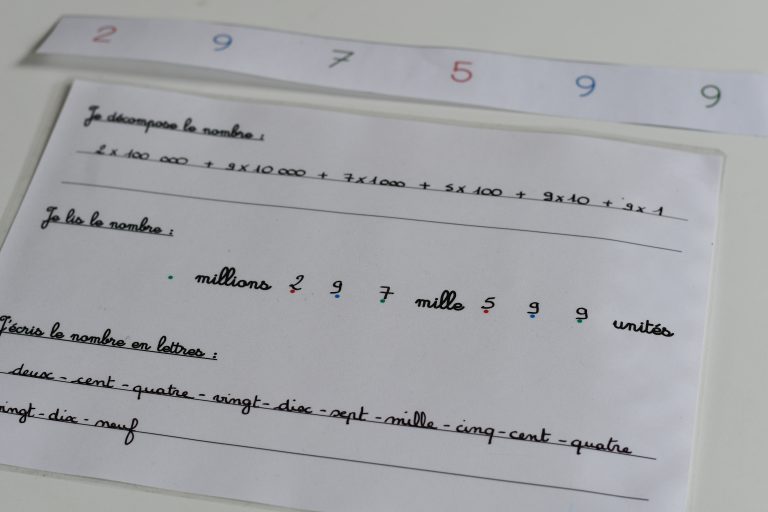 2 9 7 5 9 9
Je décompose le nombre :
2 x 100 000 + 9 x 10 000 + 7 x 1000 + 5 x 100 + 9 x 10 + 9 x 1
Je lis le nombre :
millions 2 9 7 mille 5 9 9 unités
J'écris le nombre en lettres :
deux - cent - quatre - vingt - dix - sept - mille - cinq - cent - quatre
vingt - dix - neuf